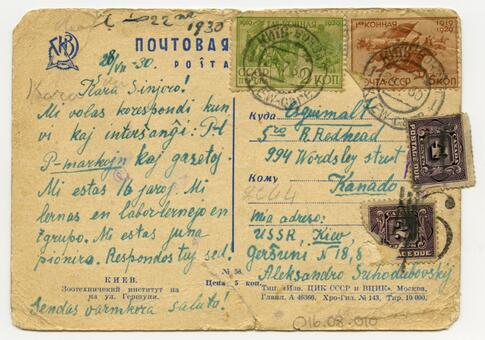 22 1930
ПОЧТОВАЯ
POŜTA
28/VII-30.
Kara Sinjoro!
Mi volas korespondi kun
vi kaj interŝanĝi: P-I
P-markojn kaj gazetoj.
Mi estas 16 jaroj. Mi
lernas en laborlernejo en
7 grupo. Mi estas juna
pioniro. Respondos taj sed.
КИЕВ.
Зоотехнический институт на
на ул. Гершуни.
Sendas varmkora saluto!
№ 58.
Цена 5 коп.
I-я КОННАЯ
1919
1929
ПОЧТА СССР
2 КОП
I-я КОННАЯ
1919
1929
ПОЧТА СССР
5 КОП
Куда Esquimalt
500 R. Redhead
994 Wordsley street
Кому Kanado
Mia adreso:
USSR, Kiew,
Gerŝuni N 18, 8
Aleksandro Suhodubovskij
CANADA
POSTAGE DUE
2
POSTAGE DUE
Тип. „Изв. ЦИК СССР и ВЦИК“, Москва,
Главл. А 46366. Хро-Гиз. № 143, Тир. 10 000.
016.08.010